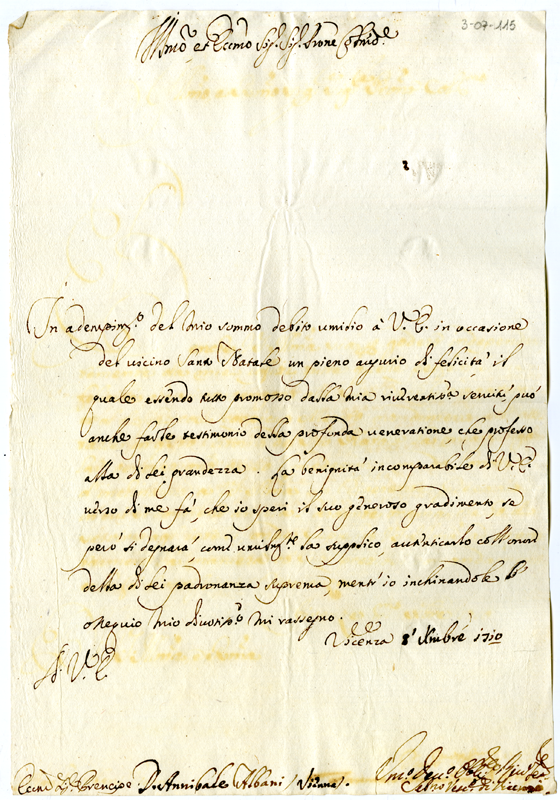 3-07-115
Illmo et Eccmo Sig.r Sig.r Prone Colmo
In adempim.to del mio sommo debito umilio à V. E. in occasione
del vicino Santo Natale un pieno augurio di felicità il
quale essendo tutto promosso dalla mia riverentiss.a servitù può
anche farle testimonio della profonda veneratione, che professo
alla di lei grandezza. La benignità incomparabile di V. E.
verso di me fà, che io speri il suo generoso gradimento, se
però si degnarà, com'umilm.te la supplico, autenticarlo coll'onore
della di lei padronanza suprema, mentr'io inchinandole l'
ossequio mio divotiss.o mi rassegno.
Vicenza 8 Xmbre 1710
D. V. E.
Principe D. Annibale Albani / Vienna /.